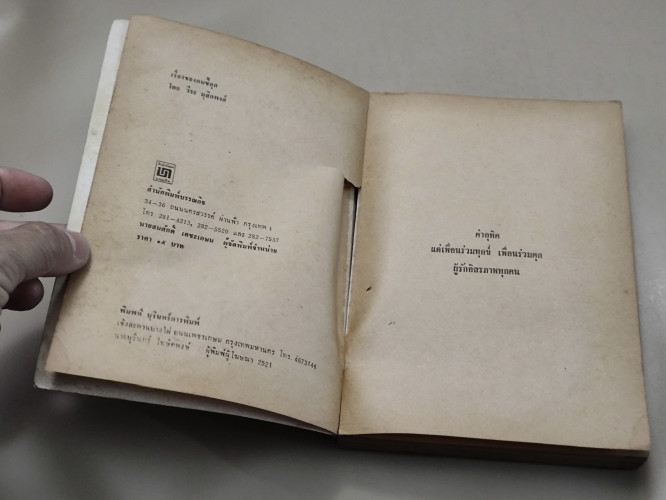 เรื่องของคนขี้คุก
โดย วีระ มุสิกพงศ์
สำนักพิมพ์บรรณกิจ
34-36 ถนนนครสวรรค์ ผ่านฟ้า กรุงเทพฯ
โทร 281-4213, 282-5520 และ 282-7537
นายสมศักดิ์ เตชะเกษม ผู้จัดพิมพ์จำหน่าย
ราคา ๑๕ บาท
พิมพ์ที่ บุรินทร์การพิมพ์
เชิงสะพานบางไผ่ ถนนเพชรเกษม กรุงเทพมหานคร โทร. 4673146
ผู้พิมพ์ผู้โฆษณา 2521
คำอุทิศ
แด่เพื่อนร่วมทุกข์ เพื่อนร่วมคุก
ผู้รักอิสรภาพทุกคน